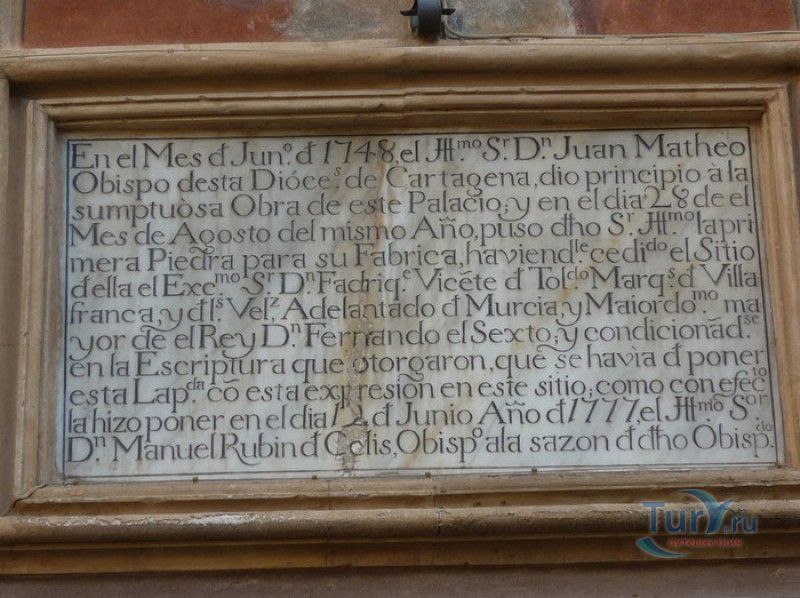 En el Mes đ Junº. đ 1748, el Jllᵐᵒ Sʳ Dⁿ Juan Matheo
Obispo desta Dióceˢ. de Cartagena, dio principio à la
sumptuòsa Obra de este Palacio; y en el dia 28 de el
Mes de Agosto del mismo Año, puso đho Sʳ Jllᵐᵒ la pri
mera Piedra para su Fabrica, haviendˡˡᵉ cediᵈᵒ el Sitio
đ ella el Excᵐᵒ Sʳ Dⁿ Fadriqᵉ Viceᷠte đ Tolᵈᵒ Marqˢ. đ Villa
franca, y đlˢ. Velᶻ Adelantado đ Murcia, y Maiordoᵐᵒ ma
yor de el Rey Dⁿ Fernando el Sexto; y condicionãdˢᵉ
en la Escriptura que otorgaron, que se havìa đ poner
esta Lapᵈᵃ cõ esta expresion en este sitio, como con efecᵗᵒ
la hizo poner en el dia 12, đ Junio Año đ 1777, el Jllᵐᵒ Sᵒʳ
Dⁿ Manuel Rubin đ Celis, Obispº a la sazon đ đho Obispᵈᵒ.
Tury.ru
путешествия